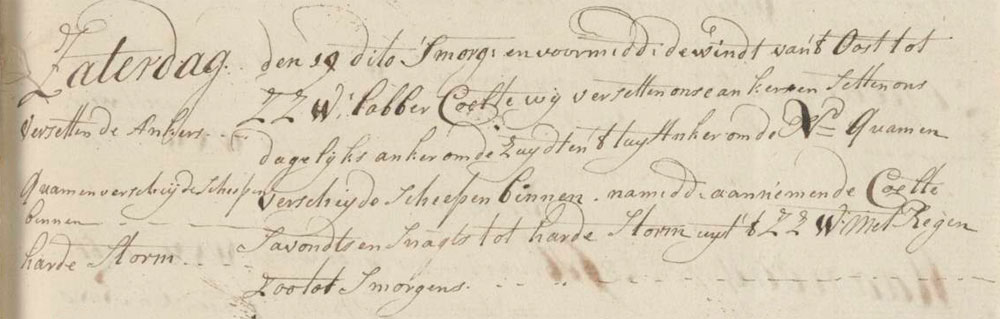 Zaterdag. den 19 dito Smorg: en voormidd: de windt van't Oost tot
ZZW: labber Coelte wij versetten onse ankers en setten ons
versetten de Ankers.
dagelijks anker om de Zuydt en 't tuy Anker om de Nd Quamen
Quamen verscheijde Scheepen
verscheijde Scheepen binnen. namidd: aannemende Coelte
binnen
Savondts en Snagts tot harde Storm uyt 't ZZW: Met Regen
harde Storm
zoo tot Smorgens.